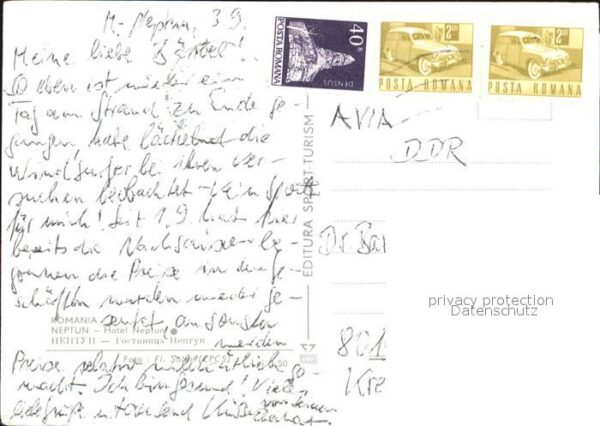 M.-Neptun, 3.9.
Meine liebe Bärbel!
Soeben ist wieder ein
Tag am Strand zu Ende ge-
gangen, habe lächelnd die
Windsurfer bei ihren Ver-
suchen beobachtet - kein Sport
für mich! Seit 1.9. hat hier
bereits die Nachsaison be-
gonnen die Preise in den Ge-
schäften wurden wieder ge-
senkt, am
werden
Preise
macht. Ich bin gesund! Viele
liebe Grüße u. tausend Küsse von Deinem
POSTA ROMANA
40 B
DENSUS
2 LEI
POSTA ROMANA
2 LEI
POSTA ROMANA
AVIA
DDR
Dr. Bar
801
Kre
EDITURA SPORT-TURISM
ROMANIA
NEPTUN — Hotel Neptun
НЕПТУН — Гостиница Нептун
Foto: Fl.
privacy protection
Datenschutz